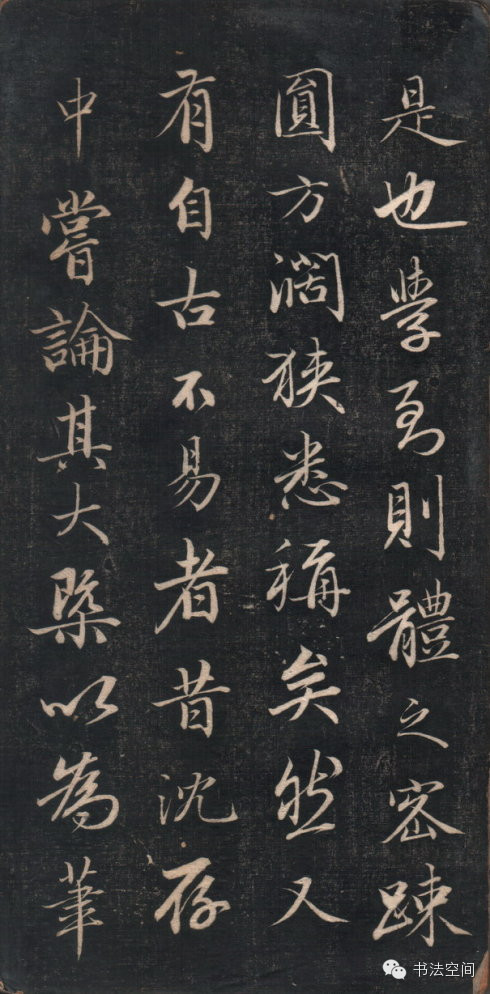 是也學至則體之密踈
圓方濶狹悉稱矣然又
有自古不易者昔沈存
中嘗論其大槩以為筆
书法空间